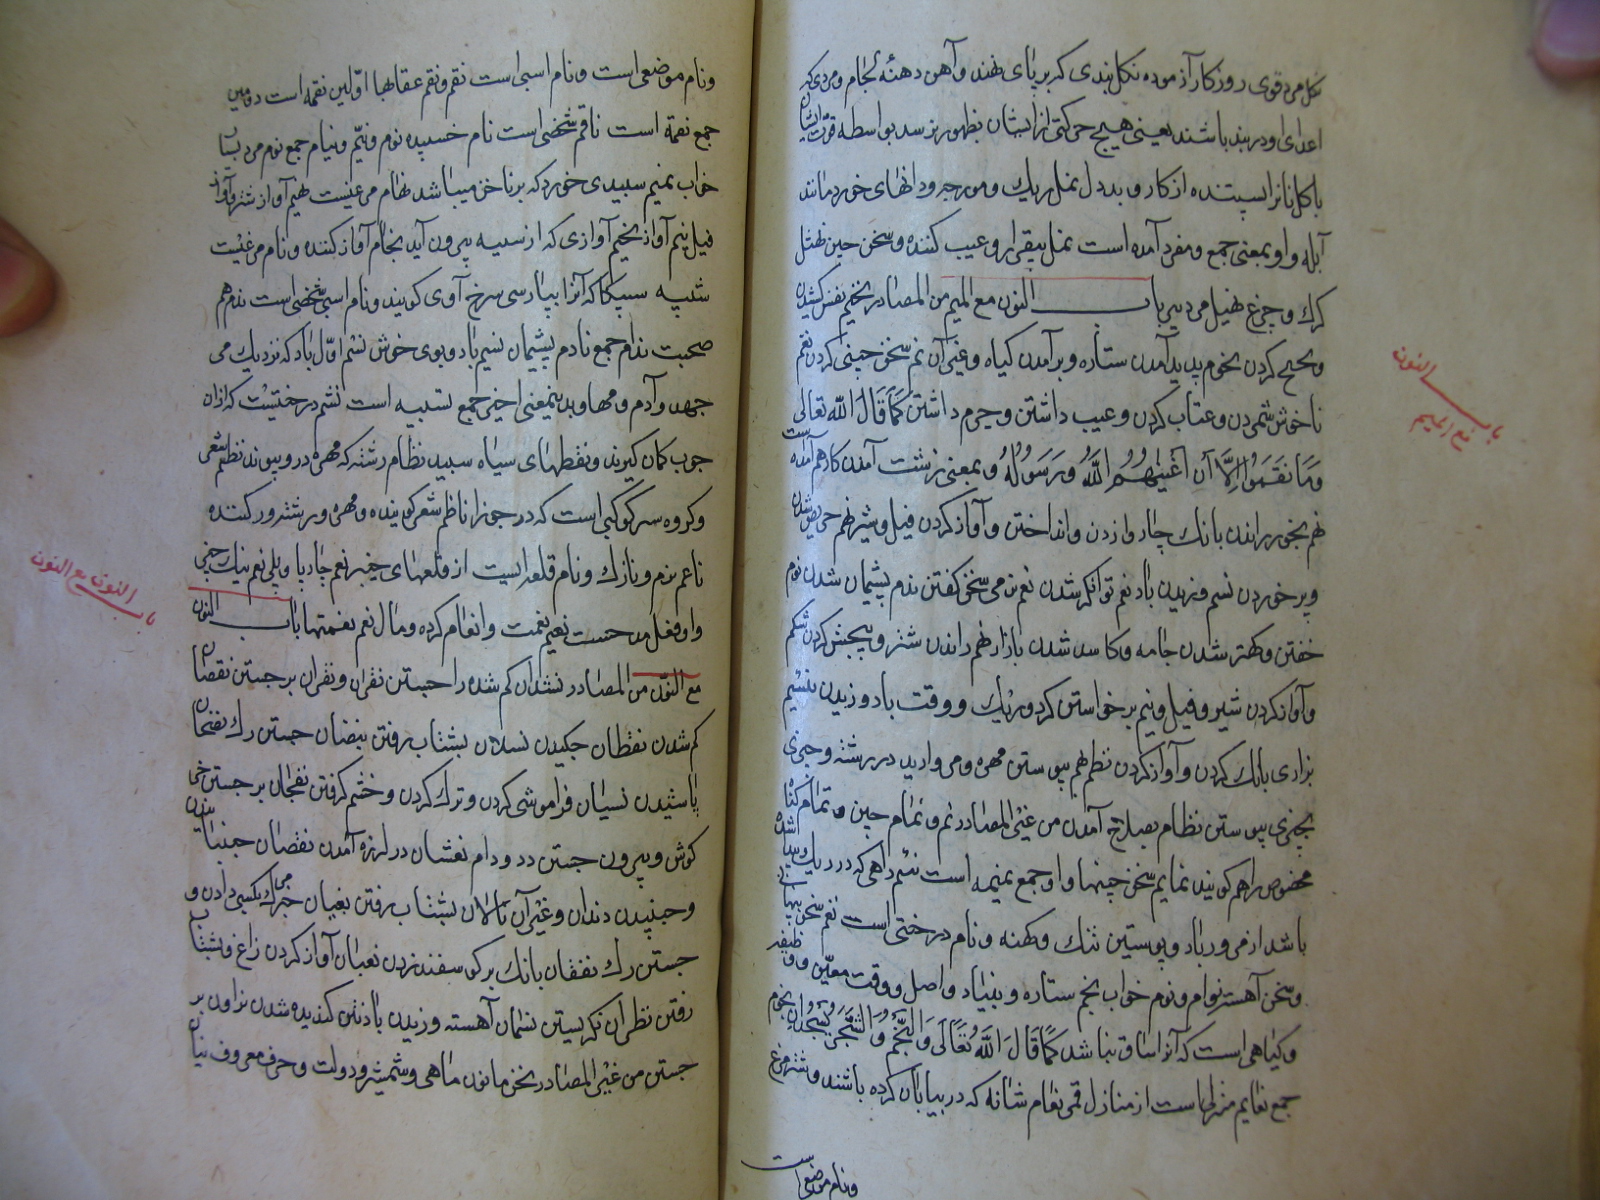 نکل مرد قوی روزکار آزموده نکل بندی که بر پای نهند و آهن دهنهٔ لجام و مردی که
اعدای او در بند باشند یعنی هیچ حرکتی از ایشان بظهور نرسد بواسطه قوت ایشان
باکل نانرا پسندنده از کار و بددل نمل ریک و مورچه و دانهای خورد مانند
آبله و او بمعنی جمع و مفرد آمده است نمل بیقرار و عیب کننده و سخن چین نهشل
کرک و چرغ نهبل مرد پیر باب النون مع المیم من المصادر نخیم نفس کشیدن
و نحنح کردن نجوم پدید آمدن ستاره و برآمدن کیاه و غیر آن نم سخن چینی کردن نقم
ناخوش شمردن و عتاب کردن و عیب داشتن و جرم داشتن کما قال الله تعالی
وَمَا نَقَمُوا إِلَّا أَن أَغْنَیٰهُمُ اللَّهُ وَرَسُولُهُ و بمعنی زشت آمدن کار هم آمده است
نهم بخور راندن بانک چاروا زدن و انداختن و آواز کردن فیل و شیر نهم حریص شدن
و بر خوردن نسم وزیدن باد نعم توانکر شدن نعم نرمی سخن کفتن ندم پشیمان شدن نوم
خفتن و کهنه شدن جامه و کاسد شدن بازار نهم راندن شتر و پیچش کردن شکم
و آواز کردن شیر و فیل و نیم برخواستن کرد و ریک و وقت باد وزیدن نئیم
بزاری بانک کردن و آواز کردن نظم بهم پیوستن مهره و مروارید در رشته و چیزی
بچیزی پیوستن نظام بصلاح آمدن من غیر المصادر نم و نمام سخن چین و تمام کناه
مخصوص را هم کویند نمایم سخن چینها و او جمع نمیمه است نئیم راهی که در ریک پیدا شده
باشد از مرور باد و پوستین تنک و کهنه و نام درختی است نغم سخن پنهانی
و سخن آهسته نوام و نوم خواب نجم ستاره و بنیاد و اصل و وقت معین و وظیفه
و کیاهی است که آنرا ساق نباشد کَمَا قَالَ اللَّهُ تَعَالَی وَالنَّجْمُ وَالشَّجَرُ یَسْجُدَانِ نجوم
جمع نعایم منزلی است از منازل قمر نعام شانه که در بیابان کرده باشند و شتر مرغ
و نام موضعی است
باب النون
مع المیم
و نام موضعی است و نام اسبی است نقم و نقم عقابها اولین نقمه است دومین
جمع نقمة است ناقم شخصی است نام خسپیده نوم و نیّم و نیام جمع نوم مرد بسیار
خواب نمنم سپیدی خورد که بر ناخن میباشد نهام مرغیست نهیم آواز شتر و آواز
فیل نئیم آواز نخیم آوازی که از سینه بیرون آید نحّام آواز کننده و نام مرغیست
شبیه سپیکا که آنرا بپارسی سرخ آوی کویند و نام اسبی شخصی است ندیم هم
صحبت ندام جمع نادم پشیمان نسیم باد و بوی خوش نسم اوّل باد که نزدیک می
جهد و آدم و مها و بدینمعنی اخیر جمع نسیمه است نشم درختیست که از ان
چوب کمان کیرند و نقطهای سیاه سپید نظام رشته که مهره در و پیوندند نظم شعر
و کروه سه کوکبی است که در جوزا ناظم شعر کوینده و مهره در رشته در کننده
ناعم نرم و نازک و نام قلعه ایست از قلعهای خیبر نعم چارپا و بلی نعم نیک چیزی
و او فعل مدحست نعیم نعمت و انعام کرده و مال نعم نعمتها باب النون
مع النون من المصادر نشدان کم شده را جستن نقران و نفران برجستن نقصان
کم شدن نقطان چکیدن نسلان بشتاب رفتن نبضان جستن رک نفخان
پاشیدن نسیان فراموشی کردن و ترک کردن و خشم کرفتن نفجان برجستن خر
کوش و بیرون جستن در و دام نعشان در لرزه آمدن نقصان جنبانیدن
و جنبیدن دندان و غیر آن نالان بشتاب رفتن نغیان خبر مرک کسی دادن و
جستن رک نفقان بانک بر کوسفند زدن نعبان آواز کردن زاغ و بشتاب
رفتن نظران نکریستن نسمان آهسته وزیدن باد نتن کندیده شدن نزوان بر
جستن من غیر المصادر نخن ما نون ماهی و شمشیر و دولت و حرف معروف نیان
باب النون مع النون